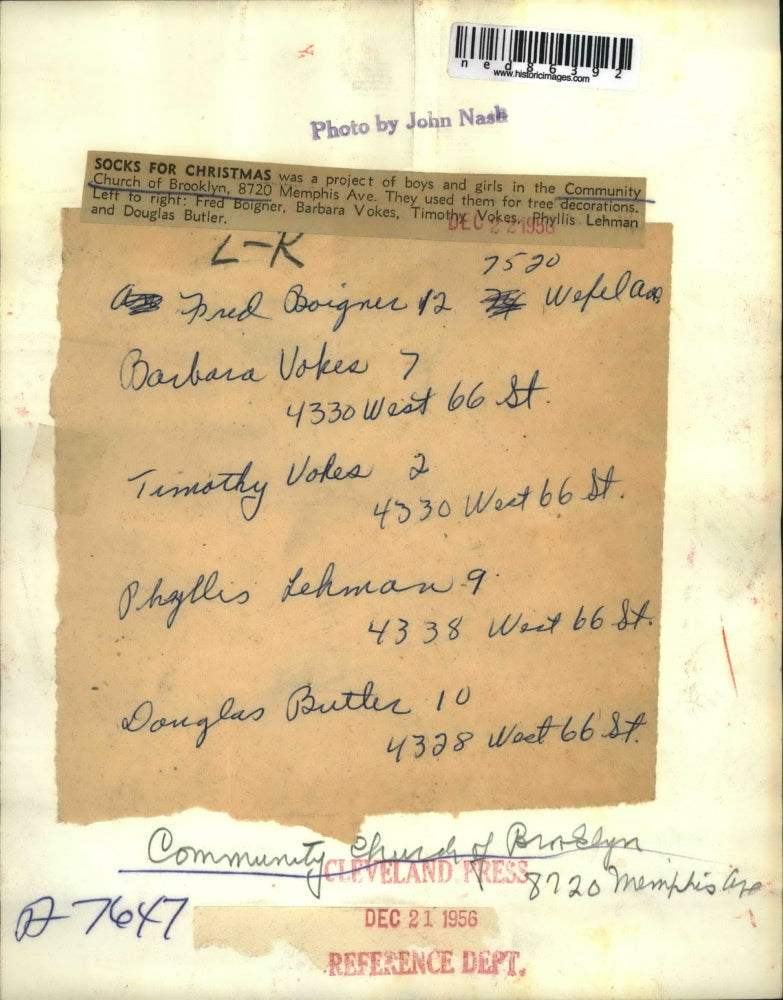 ned86392
www.historicimages.com
Photo by John Nash
SOCKS FOR CHRISTMAS was a project of boys and girls in the Community
Church of Brooklyn, 8720 Memphis Ave. They used them for tree decorations.
Left to right: Fred Boigner, Barbara Vokes, Timothy Vokes, Phyllis Lehman
and Douglas Butler.
DEC 22 1956
L-R
7520
Fred Boigner 12 Wefel Ave
Barbara Vokes 7
4330 West 66 St.
Timothy Vokes 2
4330 West 66 St.
Phyllis Lehman 9
4338 West 66 St.
Douglas Butler 10
4328 West 66 St.
Community Church of Brooklyn
8720 Memphis Ave
CLEVELAND PRESS
7647
DEC 21 1956
REFERENCE DEPT.